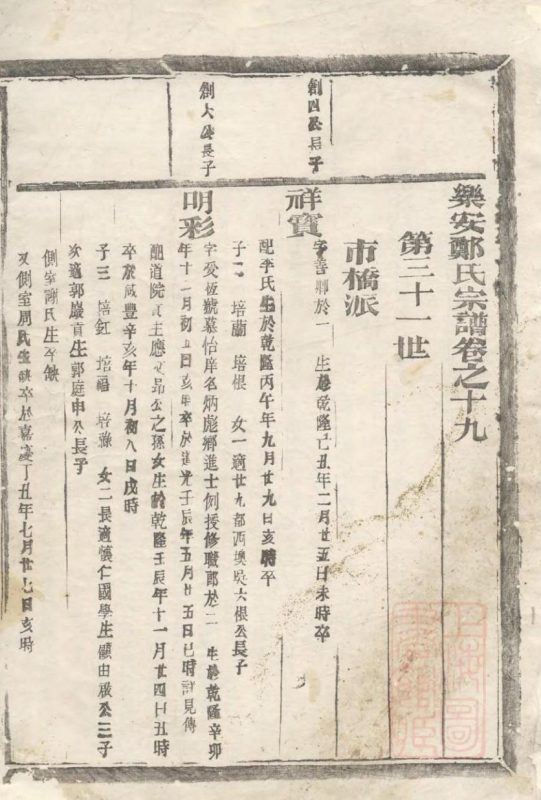 樂安鄭氏宗譜卷之十九
第三十一世
市橋派
創四公長子
祥寶
字善 於一 生於乾隆己丑年二月廿五日未時卒
配李氏生於乾隆丙午年九月廿九日亥時卒
子二 培蘭 培根 女一適廿九都西 吳大根公長子
創大公長子
明彩
字愛 號慕怡庠名炳彪鄉進士例授修職郎於二 生於乾隆辛卯
年十一月初五日亥時卒於道光壬辰年五月廿五日巳時詳見傳
配道院貢生應 昂公之孫女生於乾隆壬辰年十一月廿四日丑時
卒於咸豐辛亥年十月初八日戌時
子三 培釭 培福 培 女二長適懷仁國學生 由 公三子
次適郭巖貢生郭庭申公長子
側室謝氏生卒缺
又側室周氏生缺卒於嘉慶丁丑年七月廿七日亥時